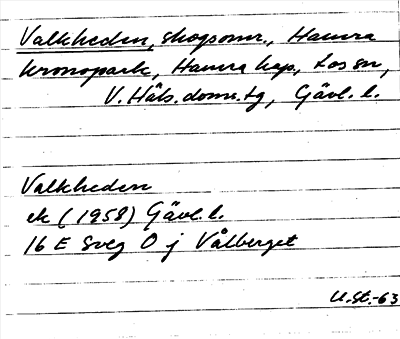 Valkheden, skogsomr., Hamra
kronopark, Hamra kap., Los sn,
V. Häls. doms.tg, Gävl. l.
Valkheden
ek (1958) Gävl. l.
16 E Sveg O j Vålberget
U.St.-63